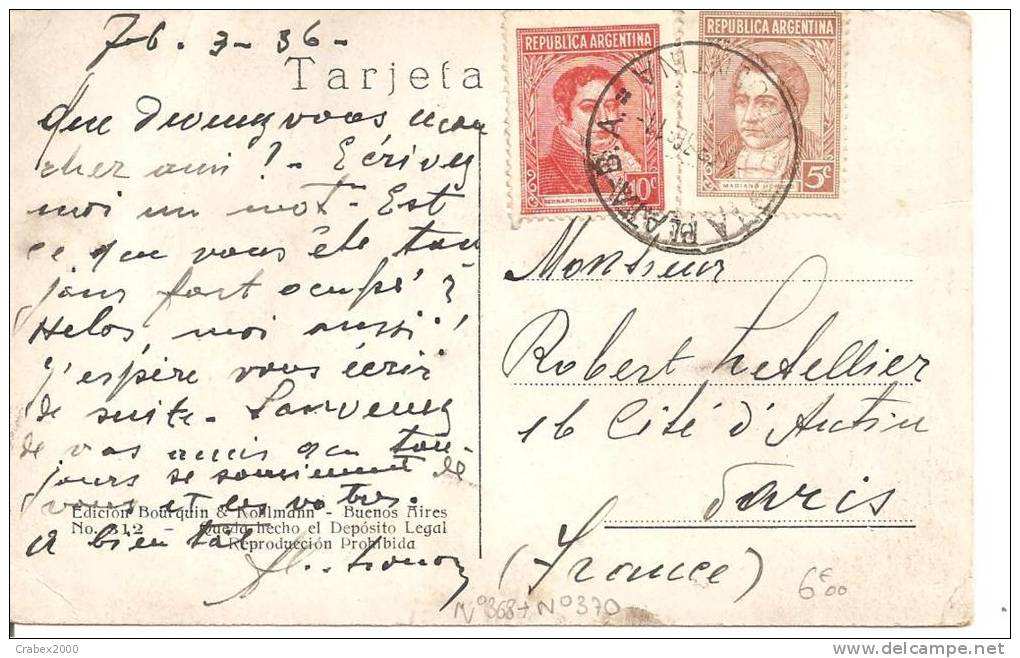 Feb. 3-36-
Tarjeta
que devenez vous mon
cher ami? - Ecrivez
moi un mot - Est
ce que vous éte tou
jours fort ocupé?
Helas, moi aussi!
J'espère vous écrir
de suite - Souvenez
de vos amis qu tou-
jours se souviennent de
vous et les votres.
a bien tôt
Edición Bourquin & Kohlmann - Buenos Aires
No. 312 - Queda hecho el Depósito Legal
Reproducción Prohibida
REPUBLICA ARGENTINA
10c
BERNARDINO
REPUBLICA ARGENTINA
5c
MARIANO
PLATA B. A.
Monsieur
Robert Letellier
16 Cité d'Antin
Paris
(France)
6€00
N°368+N°370
Crabex2000
delcampe.net